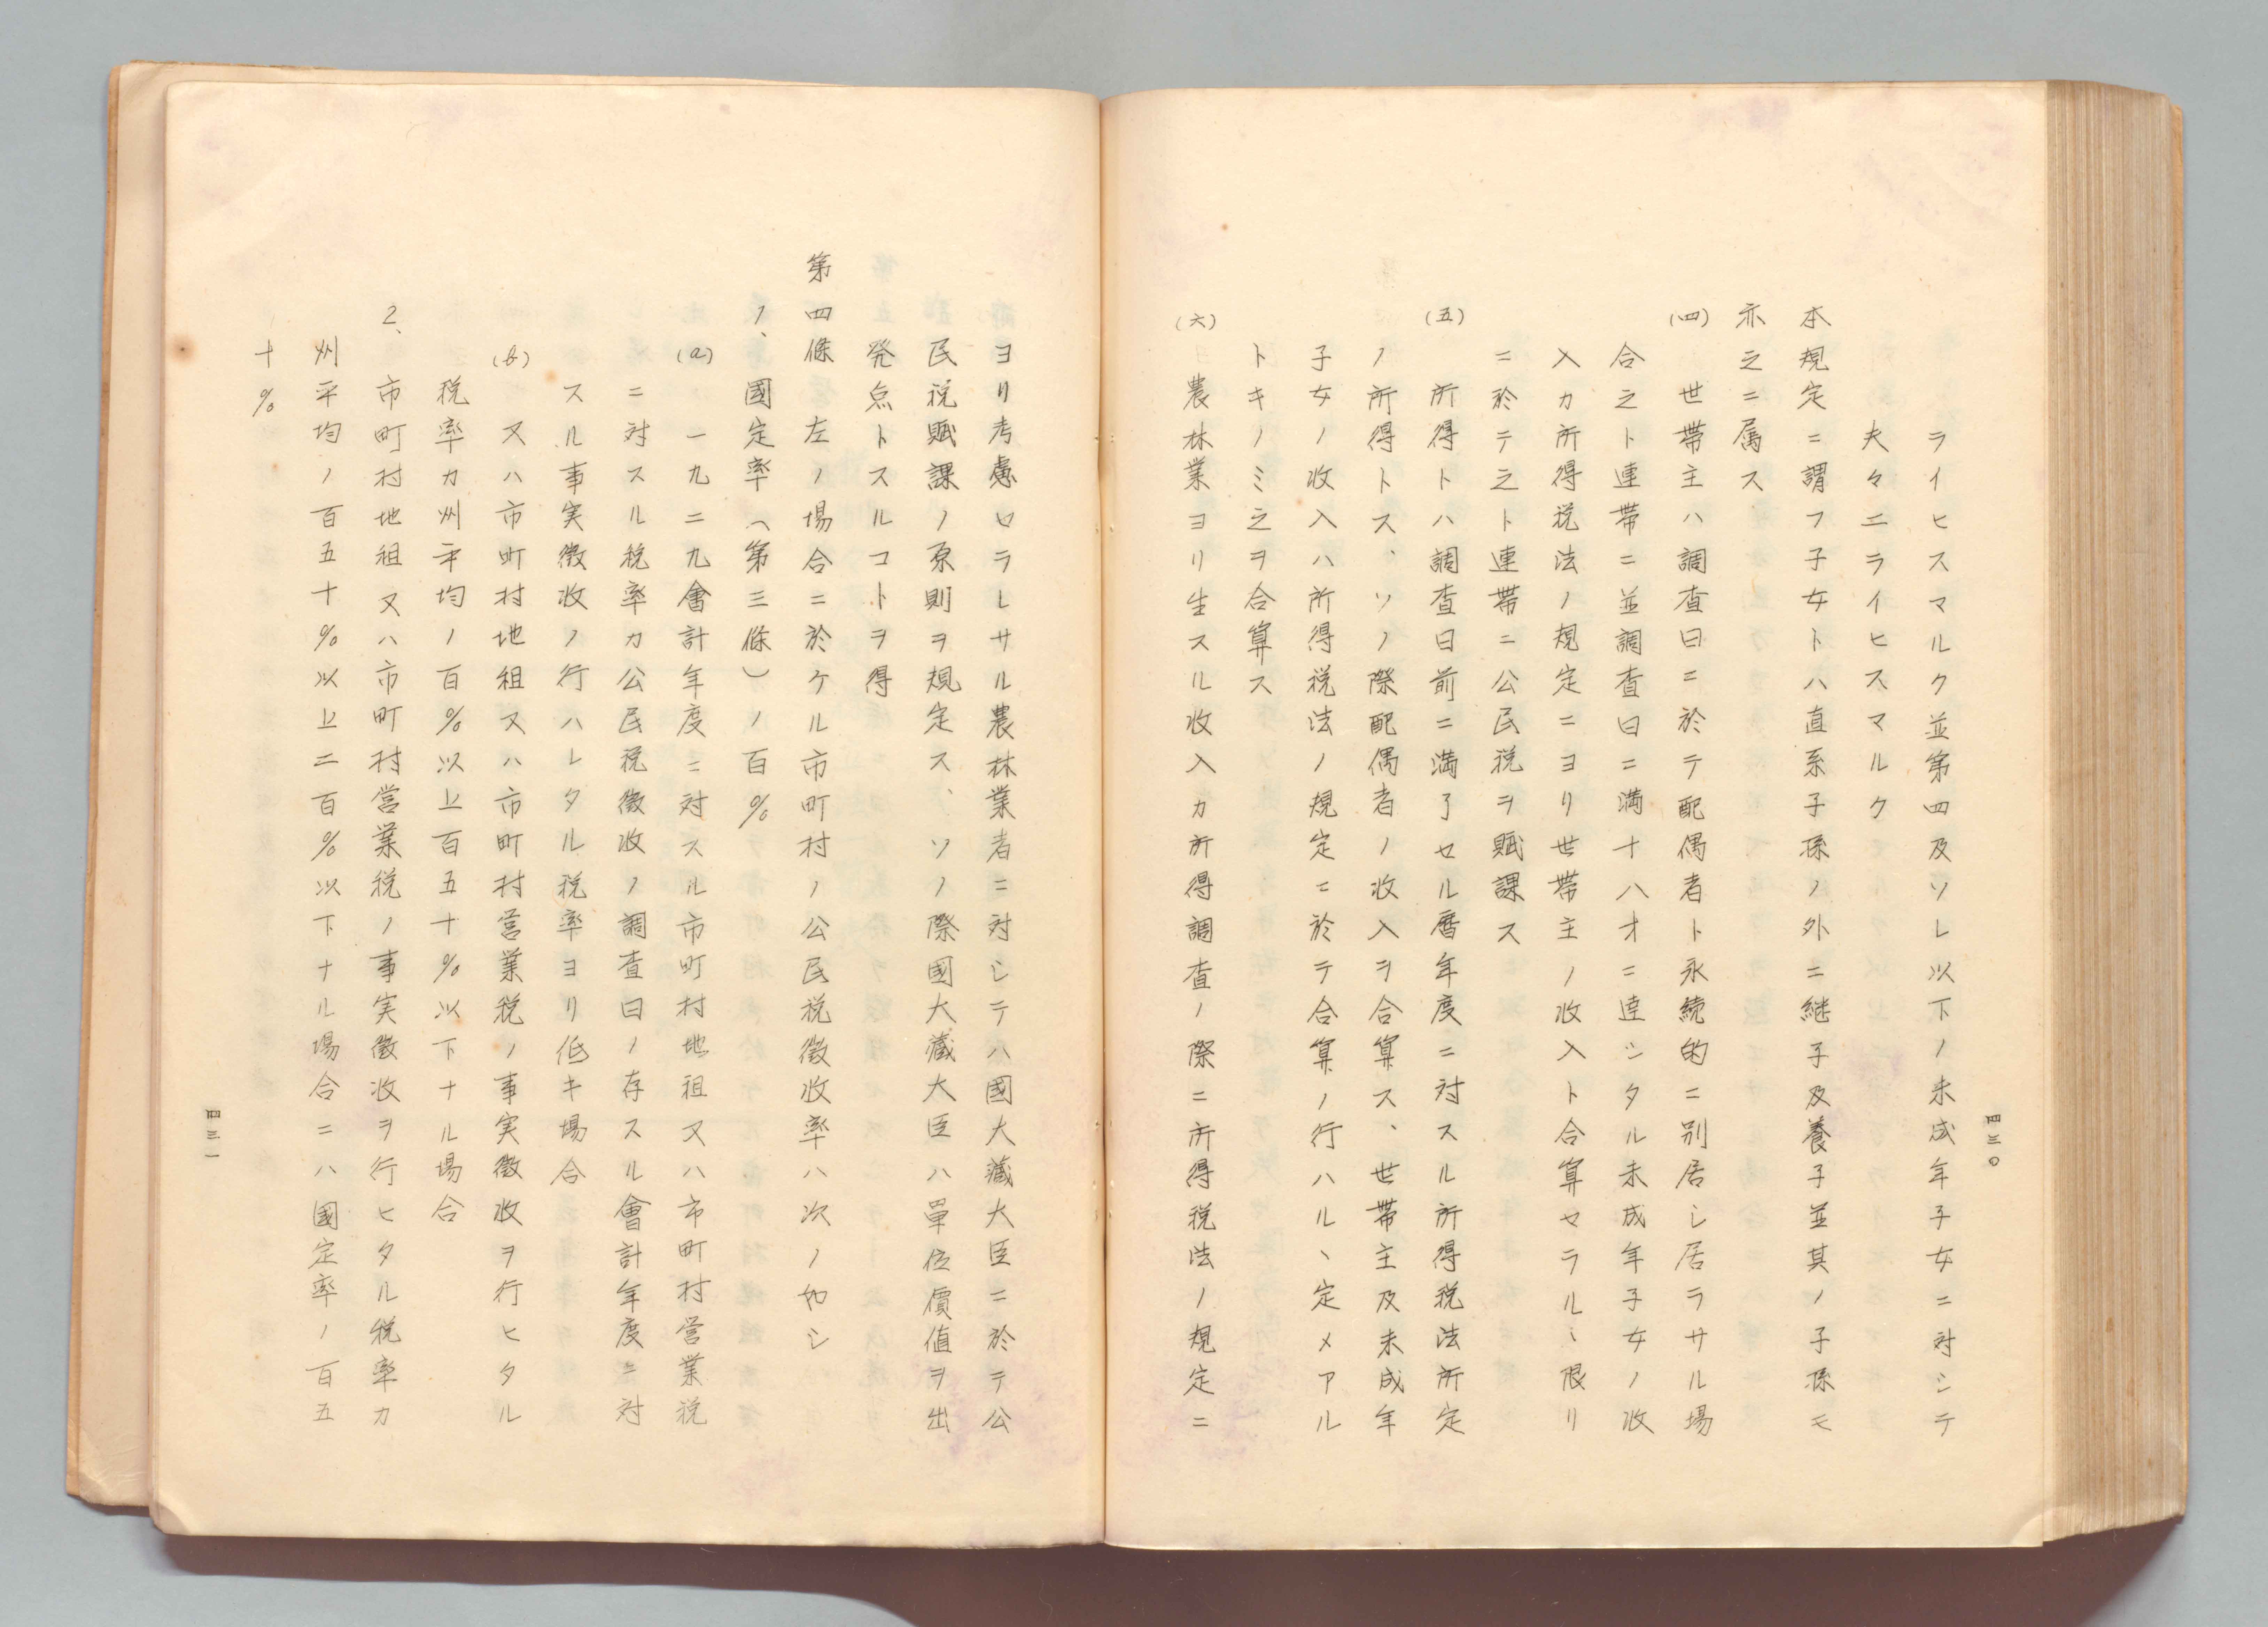 四三〇
ライヒスマルク並第四及ソレ以下ノ未成年子女ニ対シテ
夫々ニライヒスマルク
本規定ニ謂フ子女トハ直系子孫ノ外ニ継子及養子並其ノ子孫モ
亦之ニ属ス
(四) 世帯主ハ調査日ニ於テ配偶者ト永続的ニ別居シ居ラサル場
合之ト連帯ニ並調査日ニ満十八才ニ達シタル未成年子女ノ收
入カ所得税法ノ規定ニヨリ世帯主ノ收入ト合算セラルヽ限リ
ニ於テ之ト連帯ニ公民税ヲ賦課ス
(五) 所得トハ調査日前ニ満了セル暦年度ニ対スル所得税法所定
ノ所得トス、ソノ際配偶者ノ收入ヲ合算ス、世帯主及未成年
子女ノ收入ハ所得税法ノ規定ニ於テ合算ノ行ハルヽ定メアル
トキノミ之ヲ合算ス
(六) 農林業ヨリ生スル收入カ所得調査ノ際ニ所得税法ノ規定ニ
ヨリ考慮セラレサル農林業者ニ対シテハ國大藏大臣ニ於テ公
民税賦課ノ原則ヲ規定ス、ソノ際國大藏大臣ハ單位價値ヲ出
発点トスルコトヲ得
第四條 左ノ場合ニ於ケル市町村ノ公民税徴收率ハ次ノ如シ
1、國定率(第三條)ノ百%
(a) 一九二九會計年度ニ対スル市町村地祖又ハ市町村営業税
ニ対スル税率カ公民税徴收ノ調査日ノ存スル會計年度ニ対
スル事実徴收ノ行ハレタル税率ヨリ低キ場合
(b) 又ハ市町村地祖又ハ市町村営業税ノ事実徴收ヲ行ヒタル
税率カ州平均ノ百%以上百五十%以下ナル場合
2、市町村地祖又ハ市町村営業税ノ事実徴收ヲ行ヒタル税率カ
州平均ノ百五十%以上二百%以下ナル場合ニハ國定率ノ百五
十%
四三一